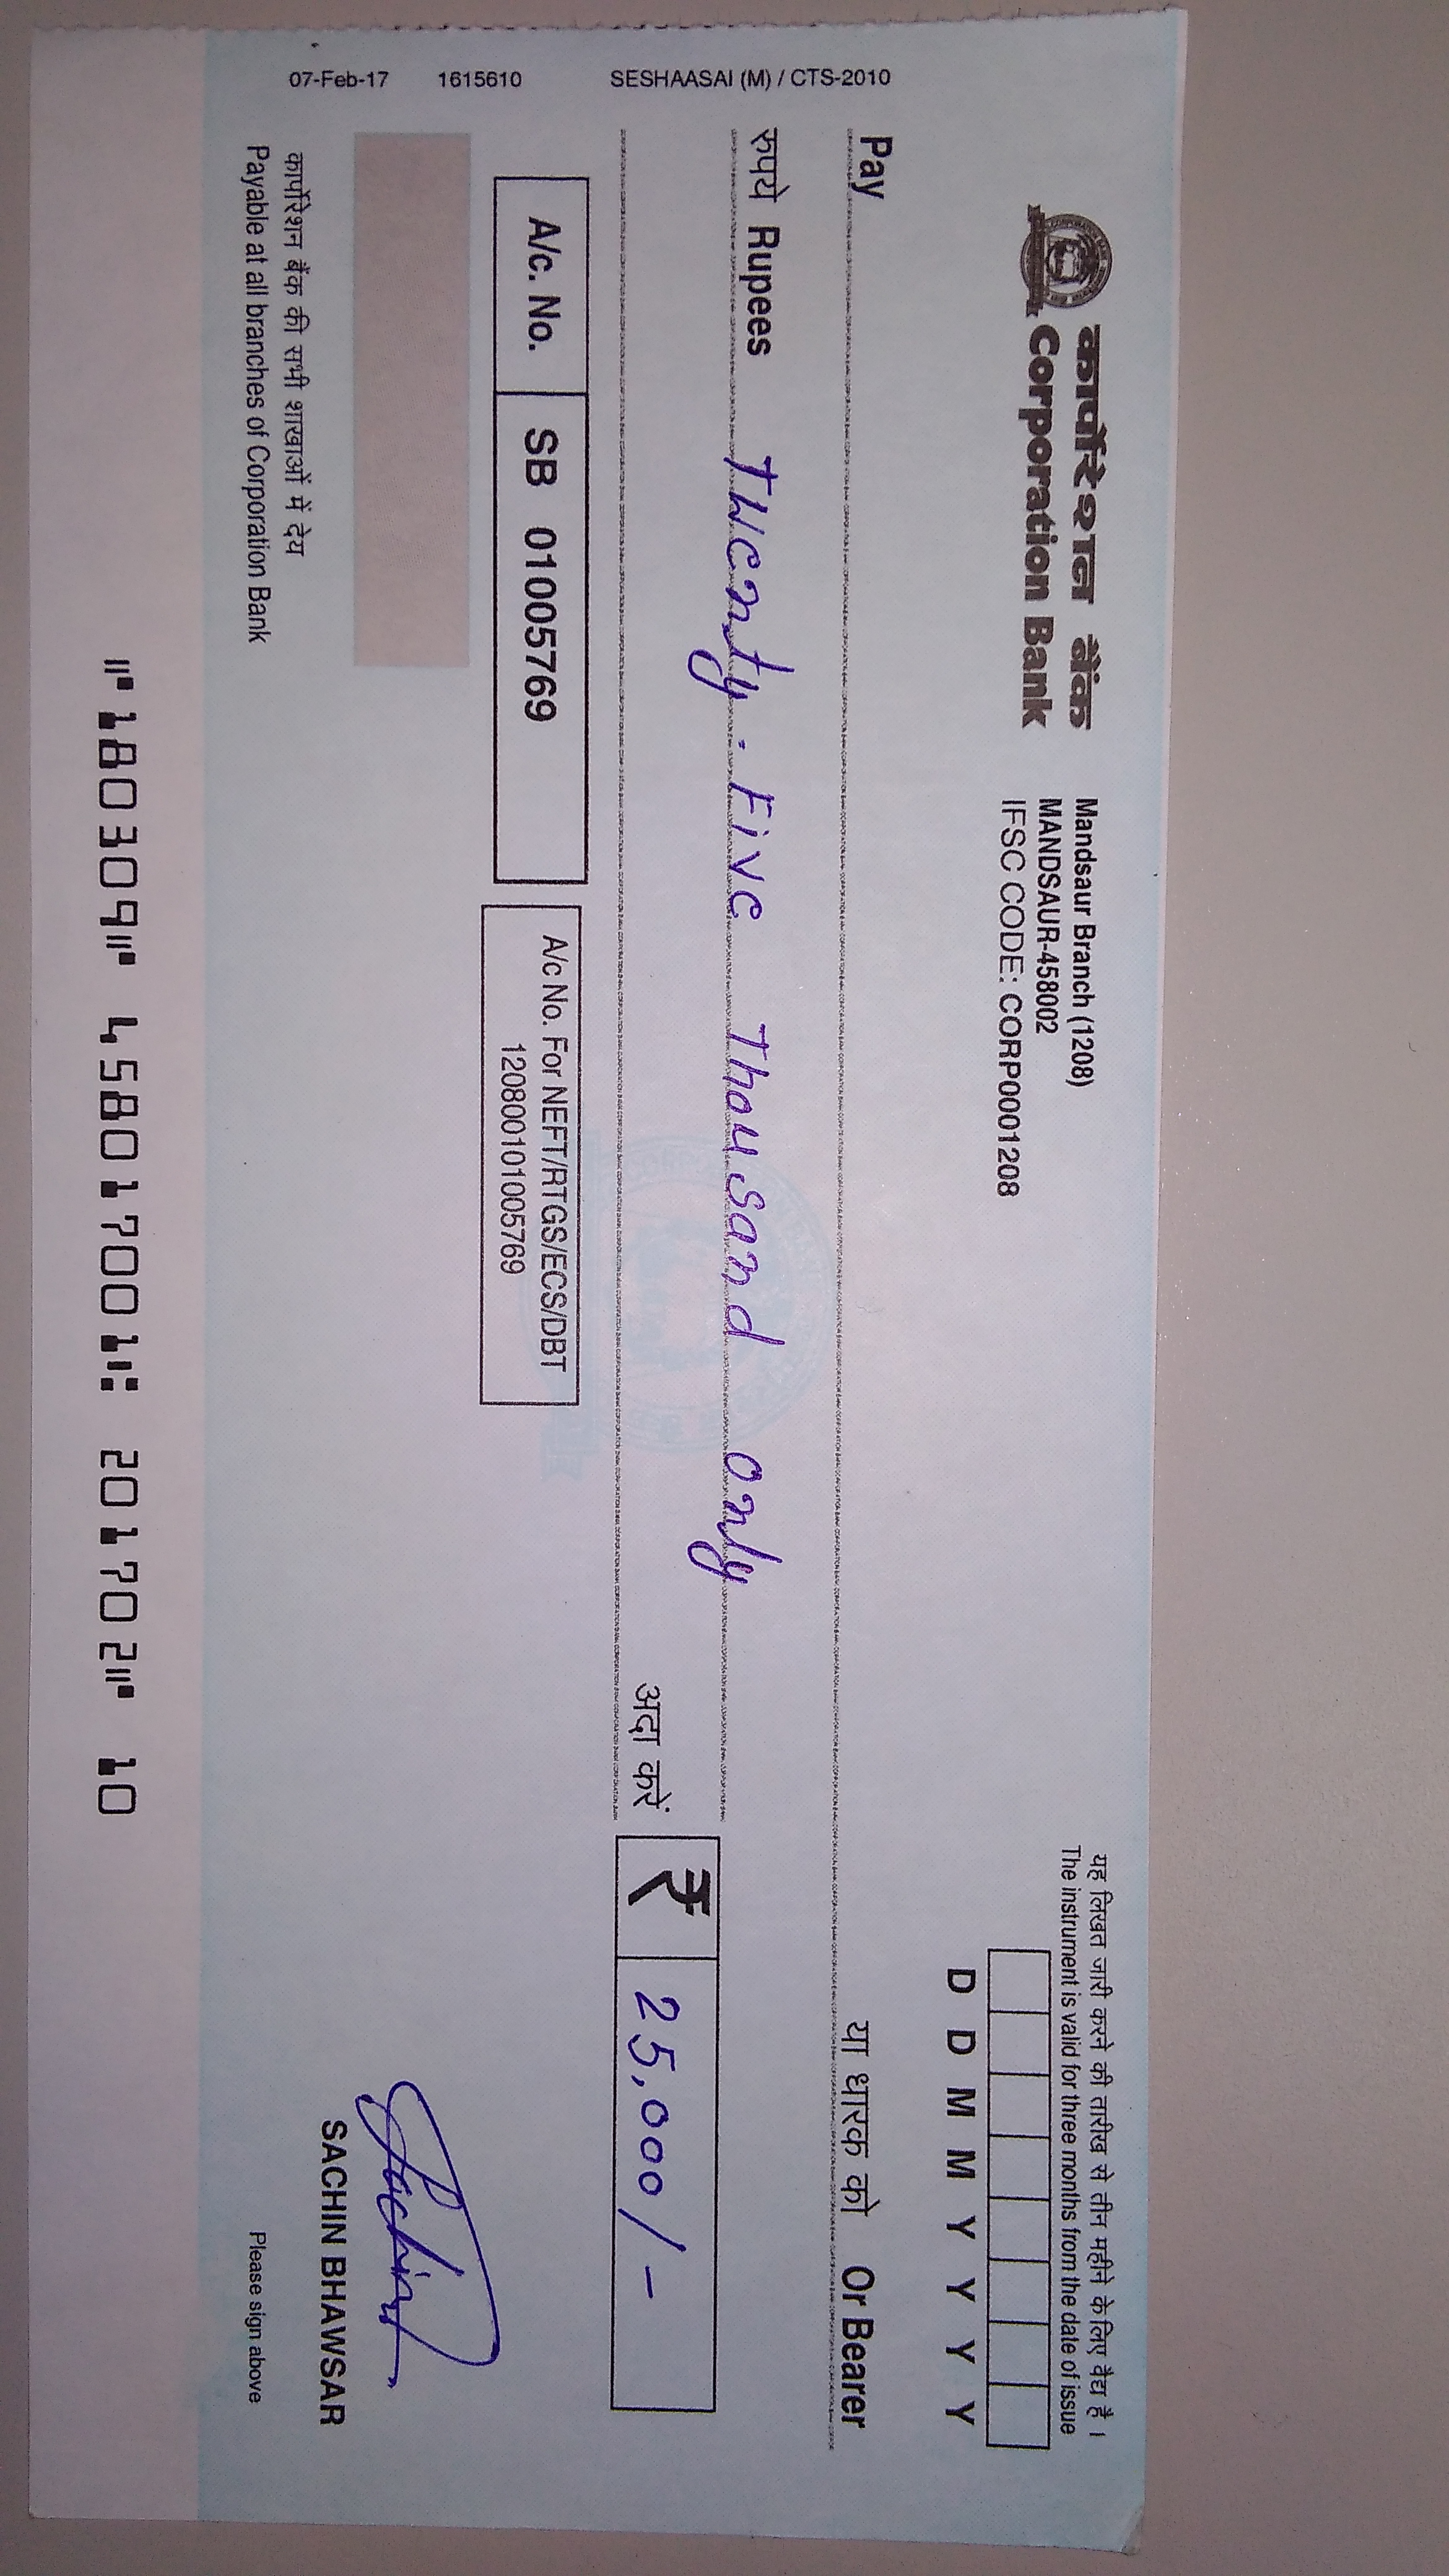 कार्पोरेशन बैंक
Corporation Bank
Mandsaur Branch (1208)
MANDSAUR-458002
IFSC CODE: CORP0001208
यह लिखत जारी करने की तारीख से तीन महीने के लिए वैद्य है ।
The instrument is valid for three months from the date of issue
D D M M Y Y Y Y
Pay
या धारक को Or Bearer
रुपये Rupees Twenty. Five Thousand only
अदा करें ₹ 25,000/-
A/c. No. SB 01005769
A/c No. For NEFT/RTGS/ECS/DBT
120800101005769
Sachin
SACHIN BHAWSAR
Please sign above
कार्पोरेशन बैंक की सभी शाखाओं में देय
Payable at all branches of Corporation Bank
⑈180309⑈ 458017001⑆ 201702⑈ 10
07-Feb-17 1615610 SESHAASAI (M) / CTS-2010